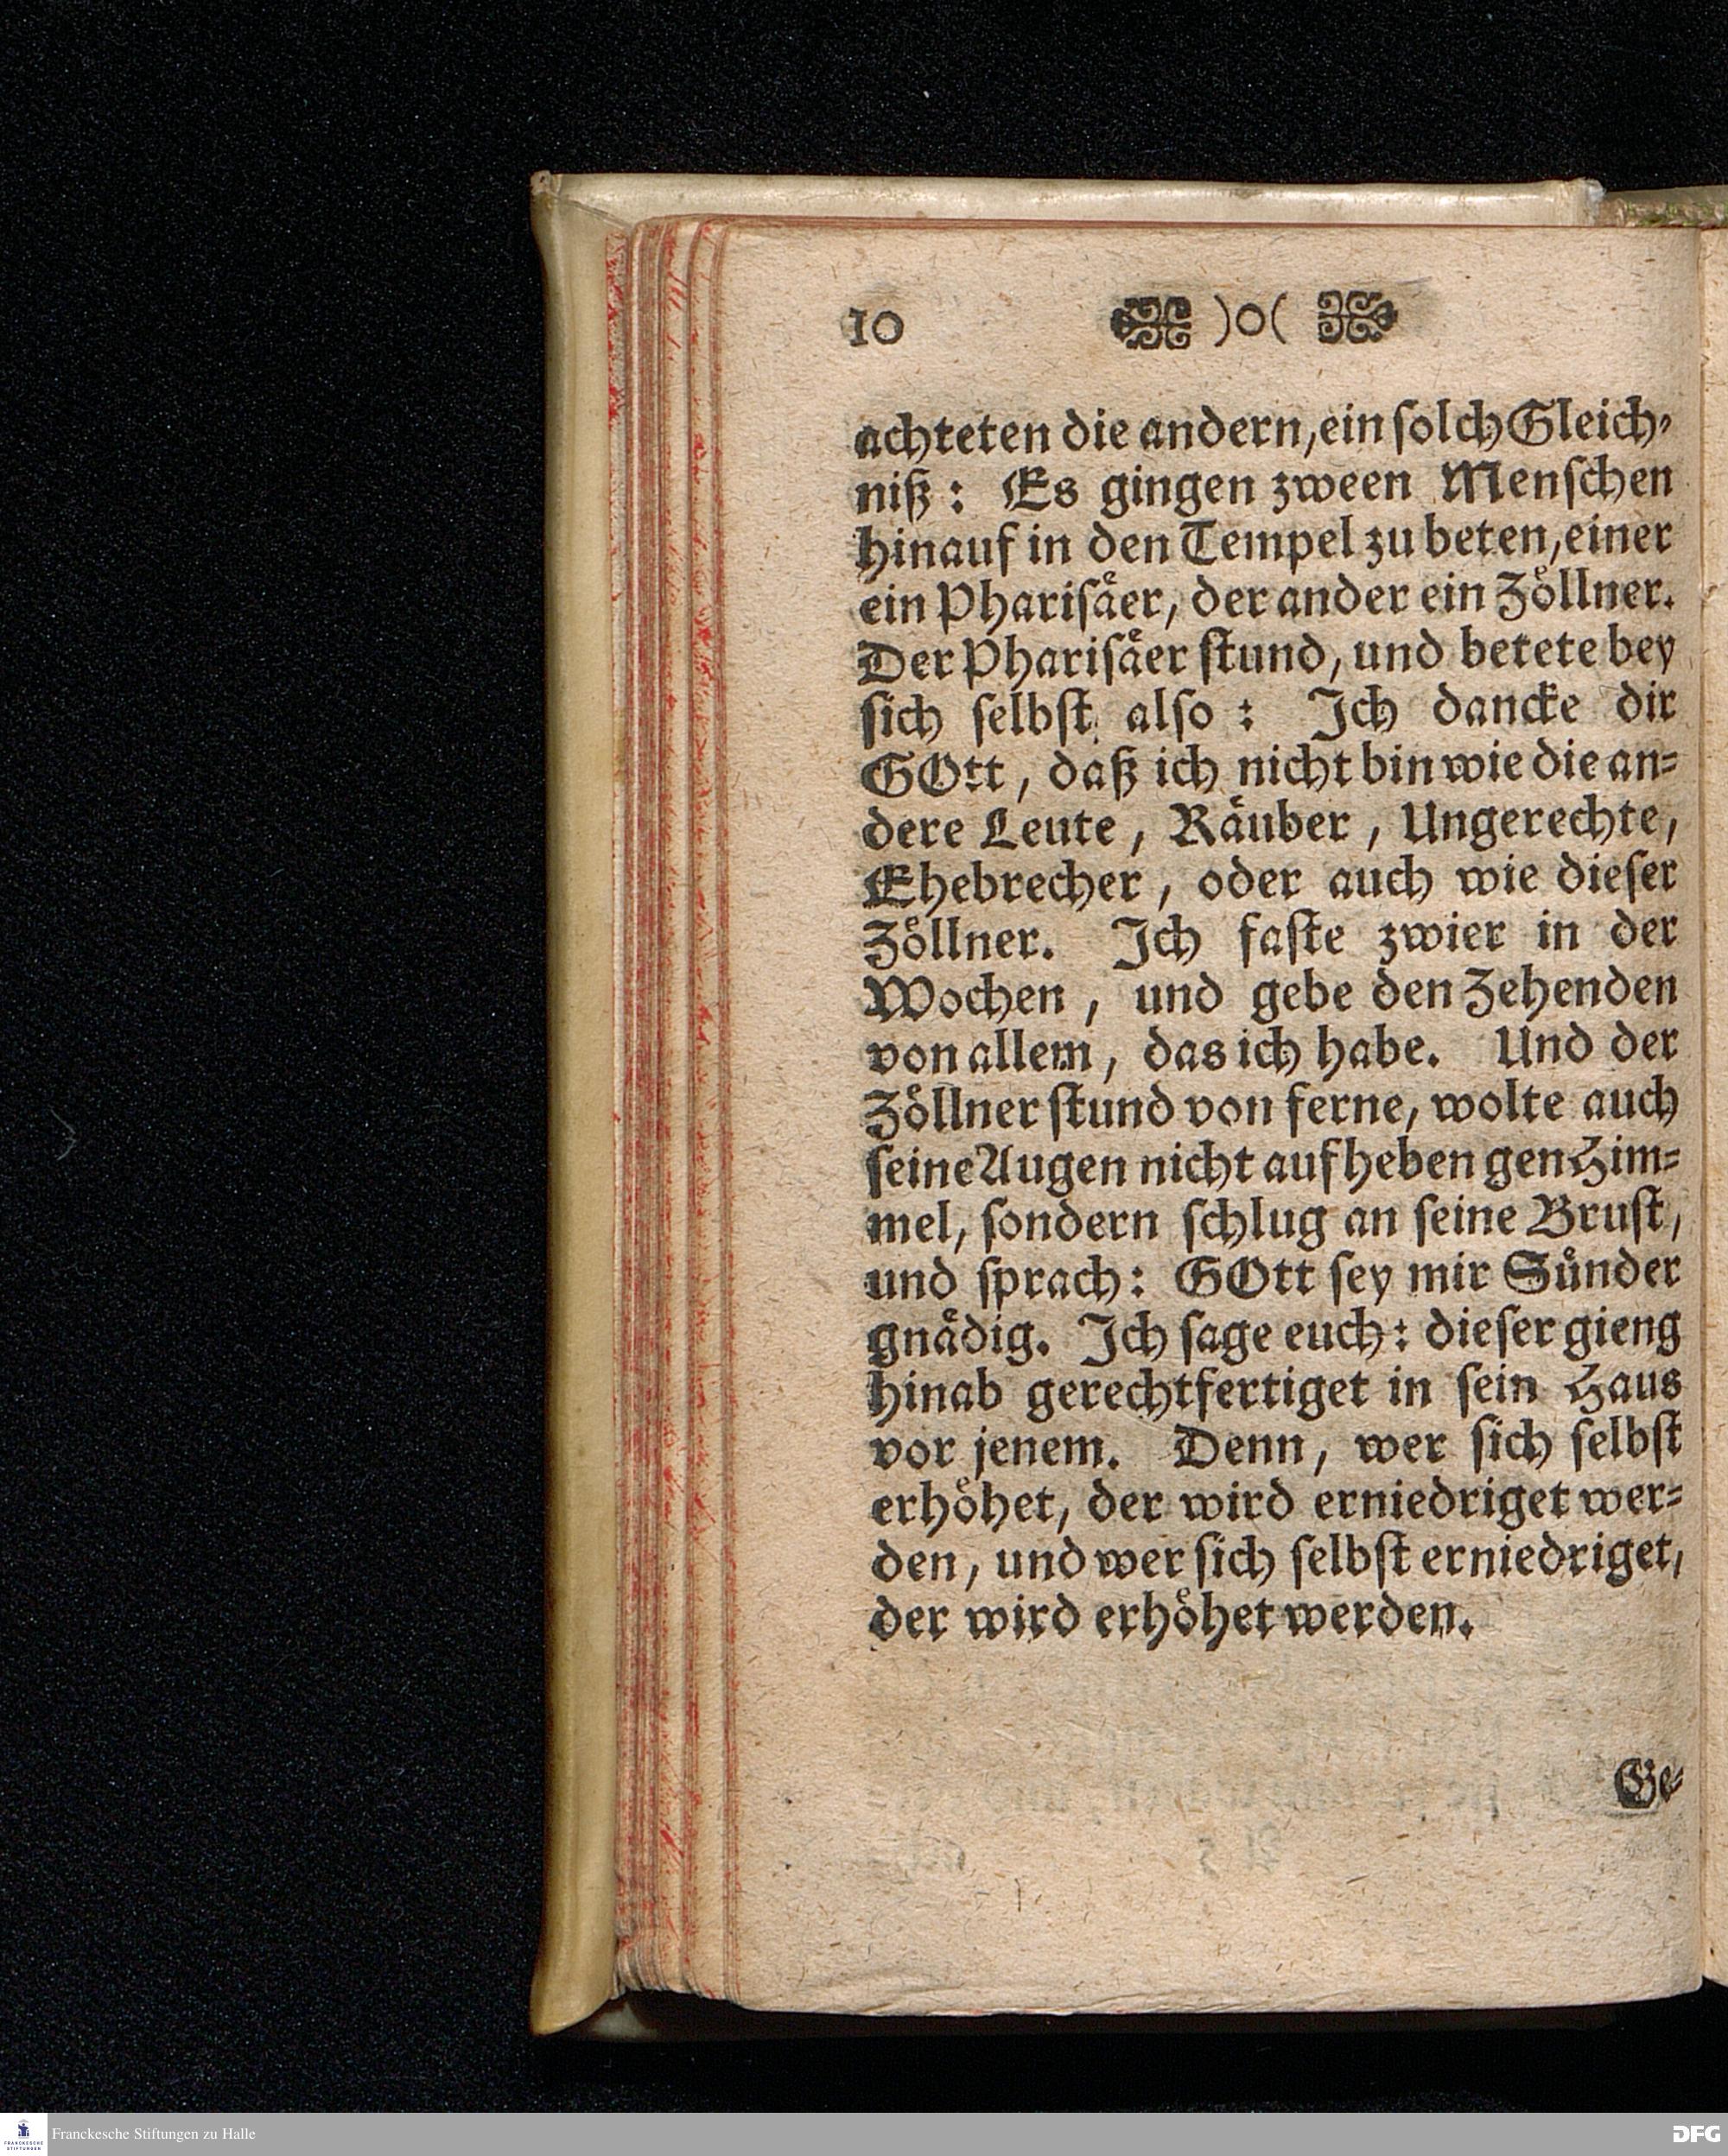 10 )o(
achteten die andern, ein ſolch Gleich-
niß: Es gingen zween Menſchen
hinauf in den Tempel zu beten, einer
ein Phariſaͤer, der ander ein Zoͤllner.
Der Phariſaͤer ſtund, und betete bey
ſich ſelbſt alſo: Ich dancke dir
GOtt, daß ich nicht bin wie die an-
dere Leute, Raͤuber, Ungerechte,
Ehebrecher, oder auch wie dieſer
Zoͤllner. Ich faſte zwier in der
Wochen, und gebe den Zehenden
von allem, das ich habe. Und der
Zoͤllner ſtund von ferne, wolte auch
ſeine Augen nicht aufheben gen Him-
mel, ſondern ſchlug an ſeine Bruſt,
und ſprach: GOtt ſey mir Suͤnder
gnaͤdig. Ich ſage euch: dieſer gieng
hinab gerechtfertiget in ſein Haus
vor jenem. Denn, wer ſich ſelbſt
erhoͤhet, der wird erniedriget wer-
den, und wer ſich ſelbſt erniedriget,
der wird erhoͤhet werden.
Ge-
FRANCKESCHE STIFTUNGEN
Franckesche Stiftungen zu Halle
DFG